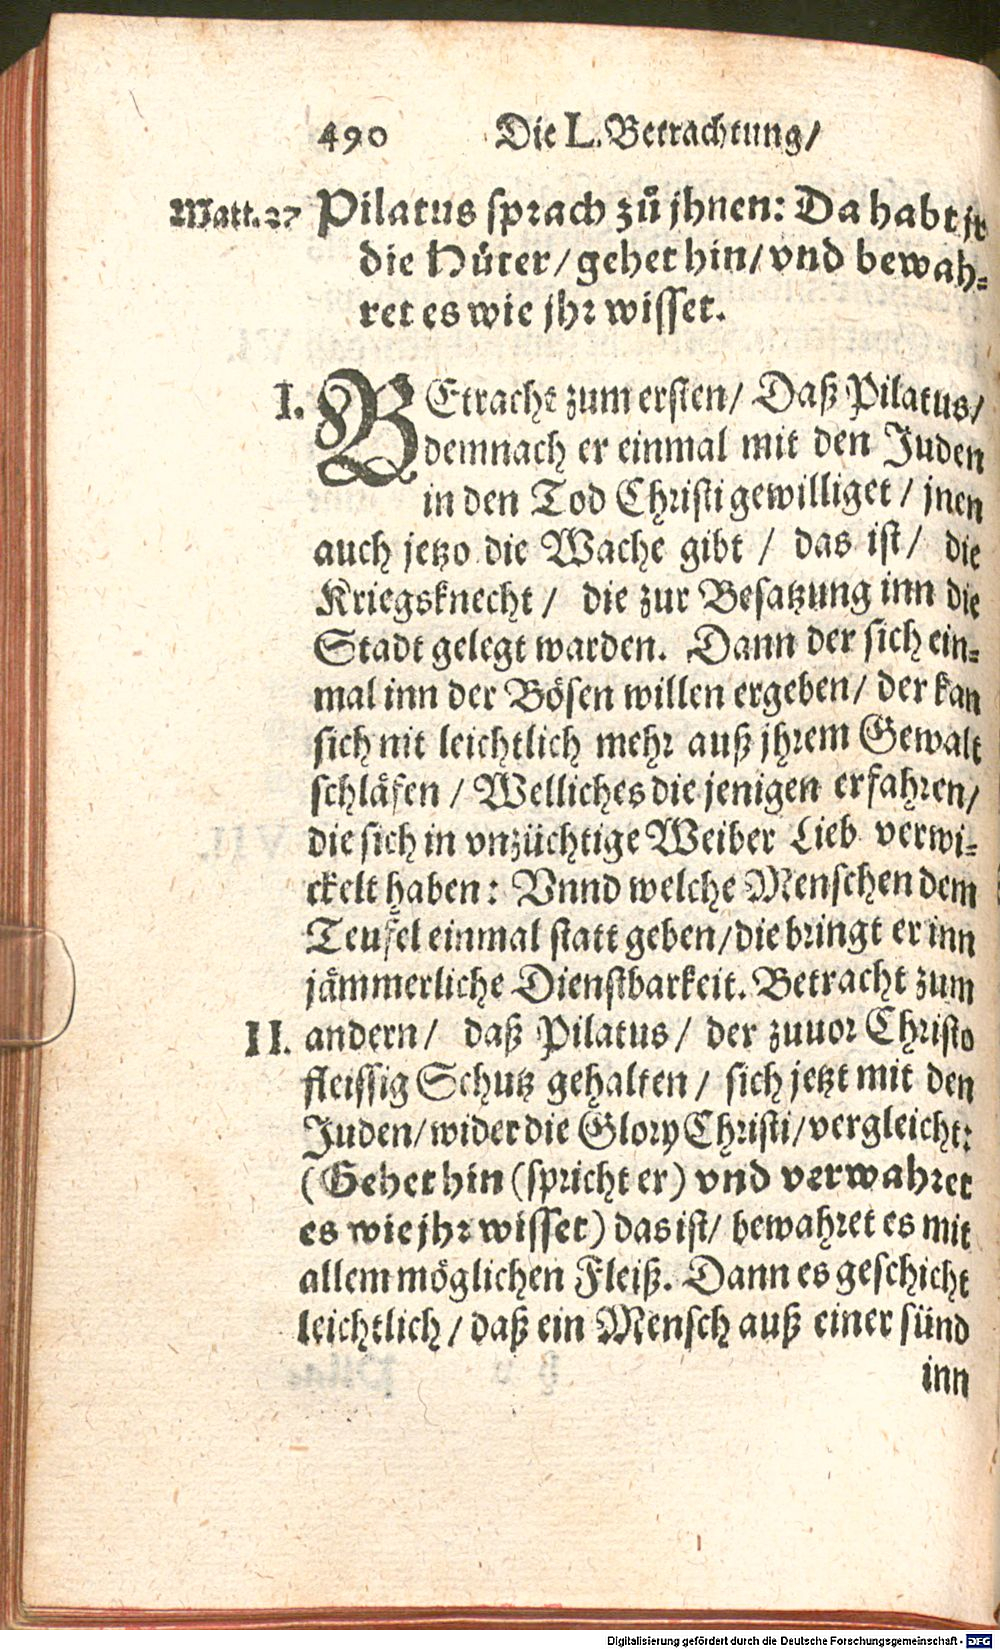 490 Die L. Betrachtung/
Matt. 27 Pilatus sprach zů jhnen: Da habt jr
die Hüter/ gehet hin/ vnd bewah-
ret es wie jhr wisset.
I. BEtracht zum ersten/ Daß Pilatus/
demnach er einmal mit den Juden
in den Tod Christi gewilliget/ jnen
auch jetzo die Wache gibt/ das ist/ die
Kriegsknecht/ die zur Besatzung inn die
Stadt gelegt warden. Dann der sich ein-
mal inn der Bösen willen ergeben/ der kan
sich nit leichtlich mehr auß jhrem Gewalt
schläfen/ Welliches die jenigen erfahren/
die sich in vnzüchtige Weiber Lieb verwi-
ckelt haben: Vnnd welche Menschen dem
Teufel einmal statt geben/ die bringt er inn
jämmerliche Dienstbarkeit. Betracht zum
II. andern/ daß Pilatus/ der zuuor Christo
fleissig Schutz gehalten/ sich jetzt mit den
Juden/ wider die Glory Christi/ vergleicht:
(Gehet hin (spricht er) vnd verwahret
es wie jhr wisset) das ist/ bewahret es mit
allem möglichen Fleiß. Dann es geschicht
leichtlich/ daß ein Mensch auß einer sünd
inn
Digitalisierung gefördert durch die Deutsche Forschungsgemeinschaft - DFG